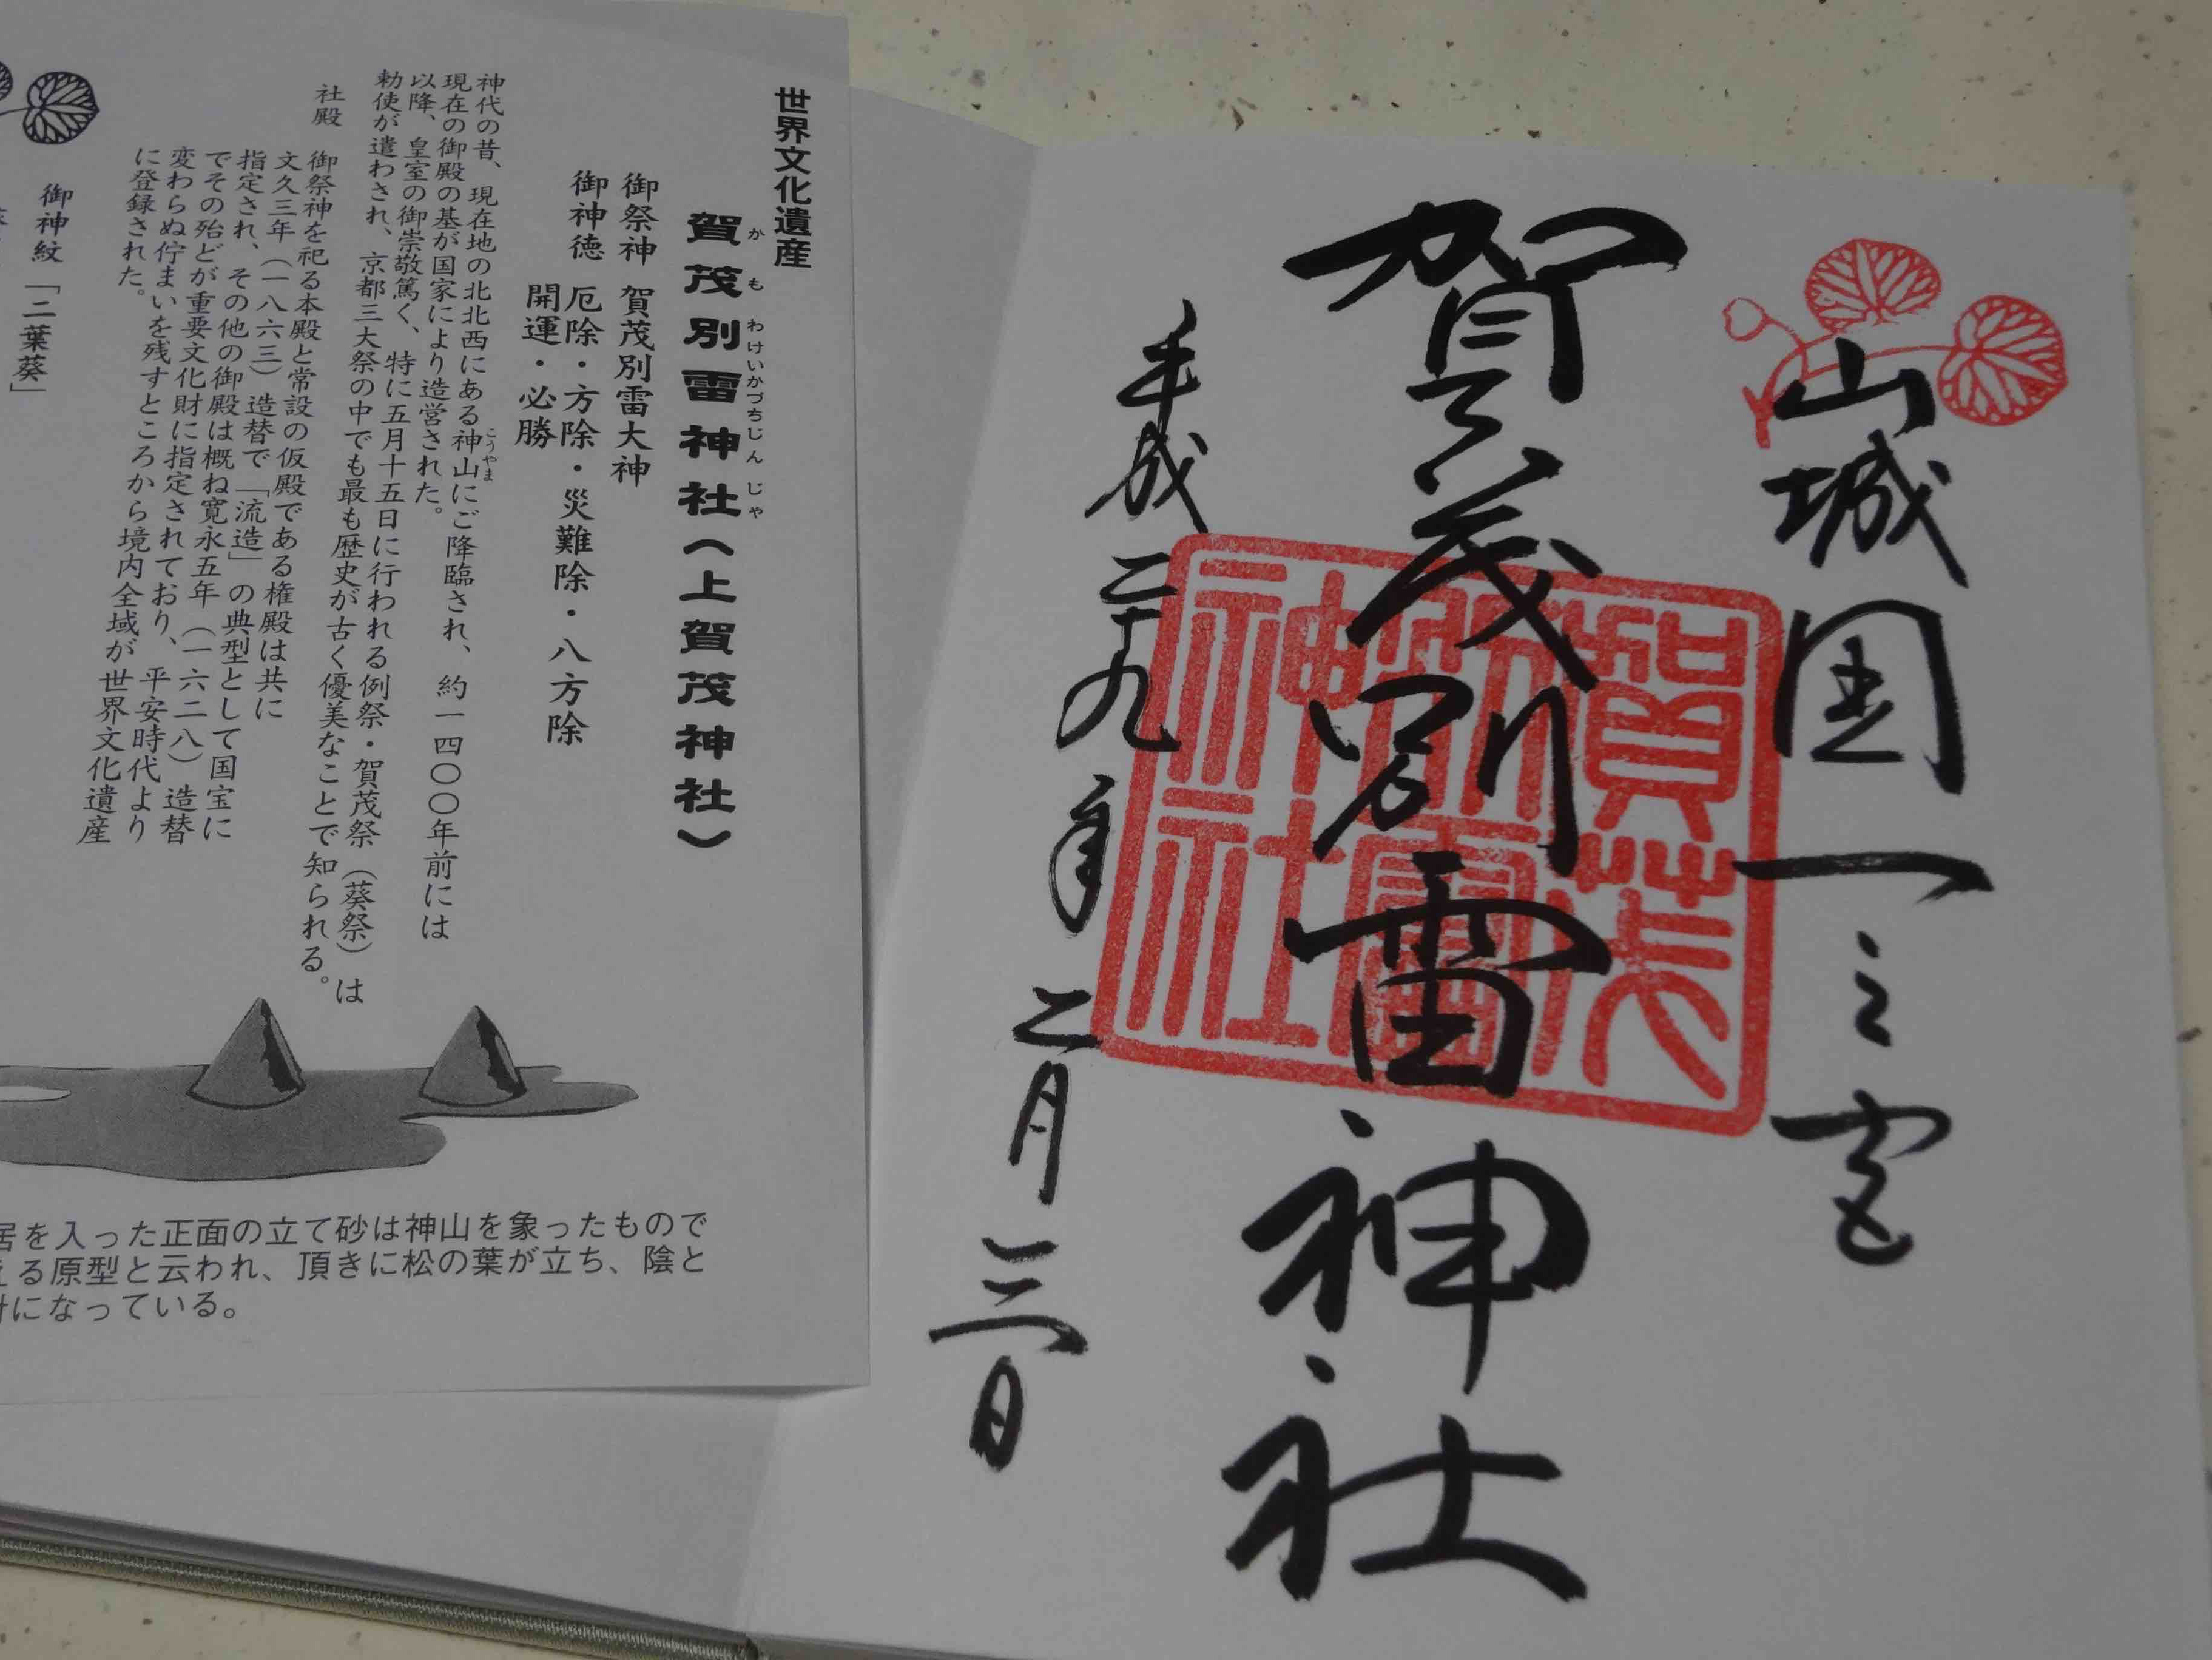 山城国一之宮
賀茂別雷神社
平成二十九年二月三日
賀茂別雷神社
世界文化遺産
賀茂別雷神社(上賀茂神社)
かもわけいかづちじんじゃ
御祭神 賀茂別雷大神
御神徳 厄除・方除・災難除・八方除
開運・必勝
神代の昔、現在地の北北西にある神山にご降臨され、約一四〇〇年前には
こうやま
現在の御殿の基が国家により造営された。
以降、皇室の御崇敬篤く、特に五月十五日に行われる例祭・賀茂祭(葵祭)は
勅使が遣わされ、京都三大祭の中でも最も歴史が古く優美なことで知られる。
社殿 御祭神を祀る本殿と常設の仮殿である権殿は共に
文久三年(一八六三)造替で「流造」の典型として国宝に
指定され、その他の御殿は概ね寛永五年(一六二八)造替
でその殆どが重要文化財に指定されており、平安時代より
変わらぬ佇まいを残すところから境内全域が世界文化遺産
に登録された。
御神紋「二葉葵」
居を入った正面の立て砂は神山を象ったもので
える原型と云われ、頂きに松の葉が立ち、陰と
になっている。